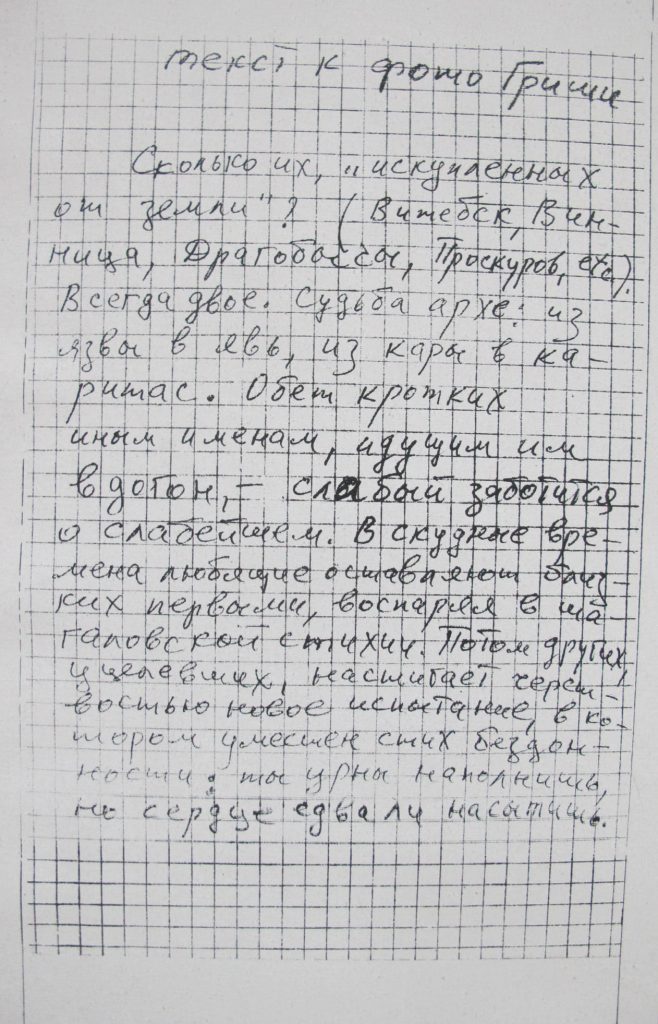 текст к фото Гриши
Сколько их, „искупленных
от земли"? (Витебск, Вин-
ница, Драгобассы, Проскуров, etc).
Всегда двое. Судьба архе: из
язвы в явь, из кары в ка-
ритас. Обет кротких
иным именам, идущим им
вдогон, – слабый заботится
о слабейшем. В скудные вре-
мена любящие оставляют близ-
ких первыми, воспаряя в ша-
галовской стихии. Потом других,
уцелевших, настигает черст-
востью новое испытание, в ко-
тором уместен стих бездон-
ности: ты урны наполнишь,
но сердце едва ли насытишь.